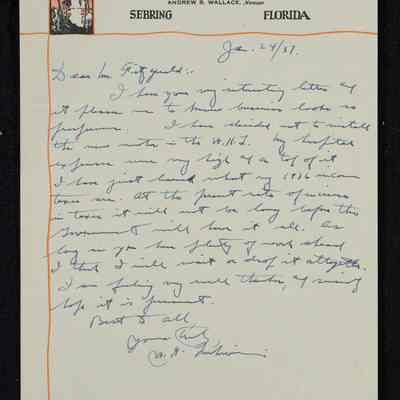 ANDREW B. WALLACE, Manager
SEBRING FLORIDA
Jan. 24/37.
Dear Mr. Fitzgerald:-
I have your very interesting letter &
it pleases me to know business looks so
prosperous. I have decided not to install
the new motor in the My hospital
expenses were very high & on top of it
I have just learned what my 1936 income
taxes are. At the present rate of increase
in taxes it will not be long before this
Government will have it all. As
long as you have plenty of work ahead
I think I will wait or drop it altogether.
I am feeling very well thanks, & sincerely
hope it is permanent.
Best to all
Yours truly